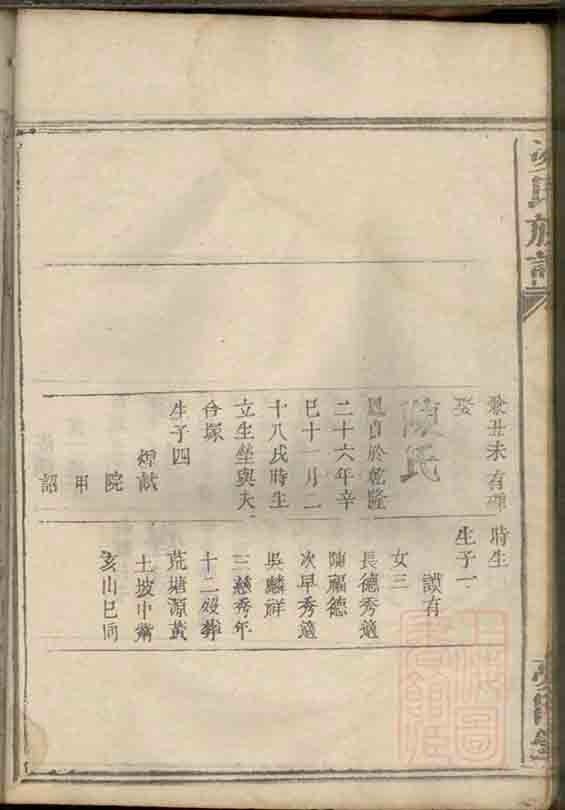 氏族譜
癸丑未有碑
娶
陳氏
於乾隆
二十六年辛
巳十一月二
十八戌時生
立生塋與夫
合塚
生子四
煜猷
院
甲
詔
時生
生子一
謨有
女三
長德秀適
陳福德
次早秀適
吳麟祥
三慈秀年
十二歿葬
荒塘源黃
土坡中
亥山巳向